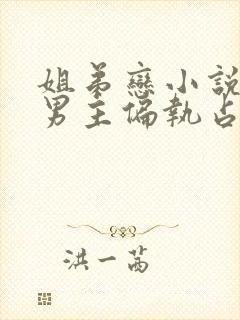 姐弟戀小說
男主偏執占
洪一茜